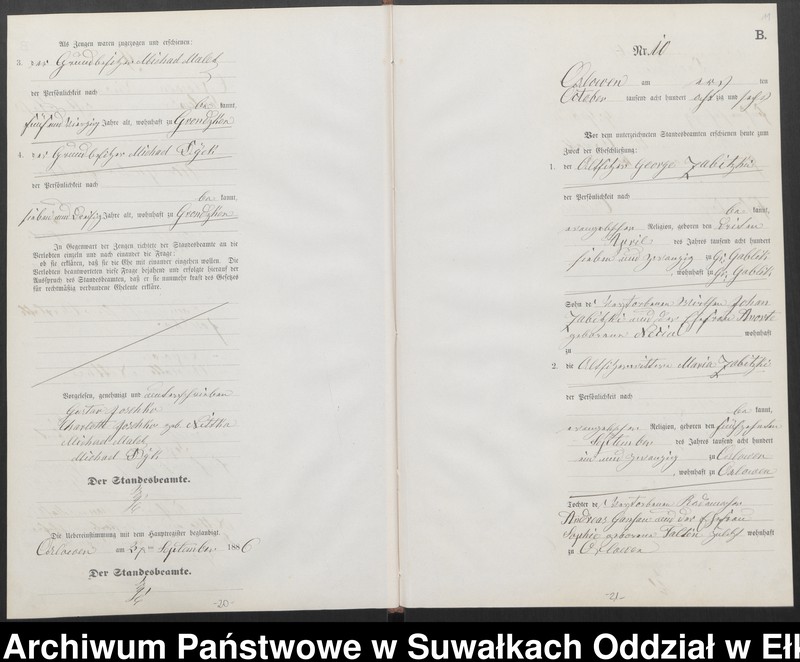 Als Zeugen waren zugezogen und erschienen:
3. der Grundbesitzer Michael Malek
der Persönlichkeit nach
be kannt,
fünf und vierzig Jahre alt, wohnhaft zu Grondzken
4. der Grundbesitzer Michael
der Persönlichkeit nach
be kannt,
sieben und dreißig Jahre alt, wohnhaft zu Grondzken
In Gegenwart der Zeugen richtete der Standesbeamte an die
Verlobten einzeln und nach einander die Frage:
ob sie erklären, daß sie die Ehe mit einander eingehen wollen. Die
Verlobten beantworteten diese Frage bejahend und erfolgte hierauf der
Ausspruch des Standesbeamten, daß er sie nunmehr kraft des Gesetzes
für rechtmäßig verbundene Eheleute erkläre.
Vorgelesen, genehmigt und unterschrieben
Gustav Joschko
Charlotte Joschko geb. Nittka
Michael Malek
Michael
Der Standesbeamte.
Die Uebereinstimmung mit dem Hauptregister beglaubigt.
Orlowen am ten September 1886
Der Standesbeamte.
-20-
B.
Nr. 10
Orlowen am ten
October tausend acht hundert acht zig und sechs
Vor dem unterzeichneten Standesbeamten erschienen heute zum
Zweck der Eheschließung:
1. der Altsitzer George Zabitzki
der Persönlichkeit nach
be kannt,
evangelischer Religion, geboren den dritten
April des Jahres tausend acht hundert
sieben und zwanzig zu Gr. Gablick
, wohnhaft zu Gr. Gablick
Sohn des verstorbenen Wirthen Johan
Zabitzki und der Ehefrau
geborene wohnhaft
zu
2. die Altsitzerwittwe Maria Zabitzki
der Persönlichkeit nach
be kannt,
evangelischer Religion, geboren den fünfzehnten
September des Jahres tausend acht hundert
und zwanzig zu Orlowen
, wohnhaft zu Orlowen
Tochter des verstorbenen
Andreas und der Ehefrau
Sophie geborene wohnhaft
zu Orlowen
-21-
Archiwum Państwowe w Suwałkach Oddział w Eł